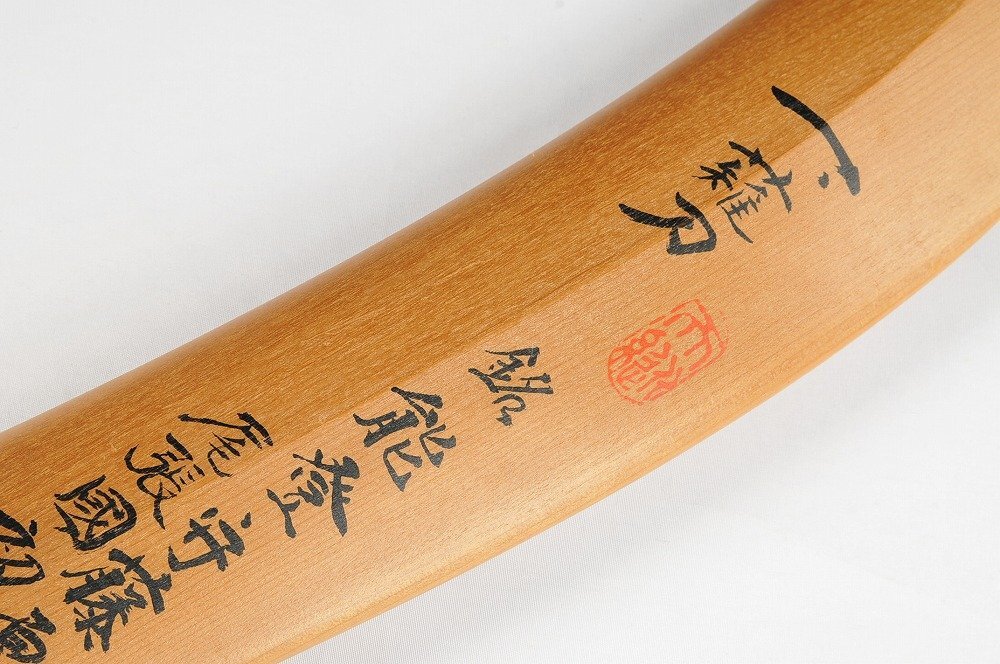 一、薙刀
銘能登守藤原
尾張國初